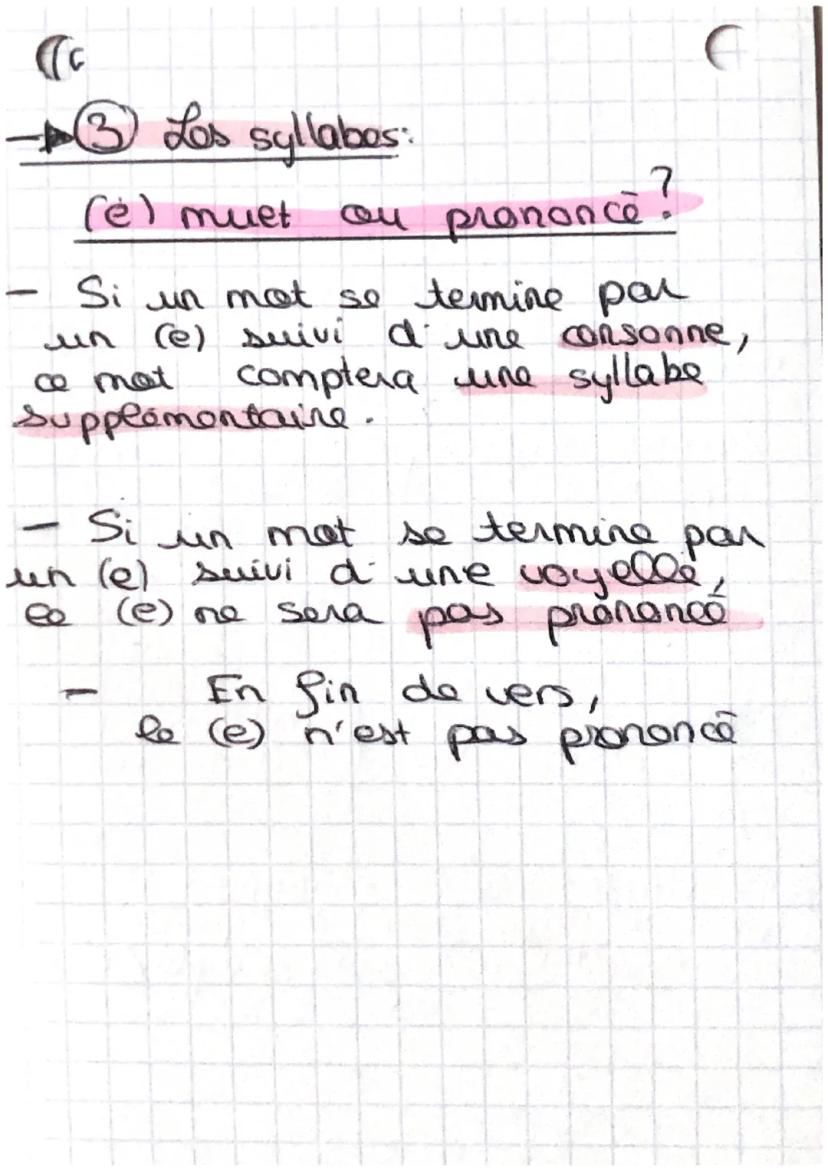 → ③ Les syllabes:
(e) muet ou prononcé?
- Si un mot se termine par
un (e) suivi d'une consonne,
ce mot comptera une syllabe
supplémentaire.
- Si un mot se termine par
un (e) suivi d'une voyelle,
le (e) ne sera pas prononcé
- En fin de vers,
le (e) n'est pas prononcé